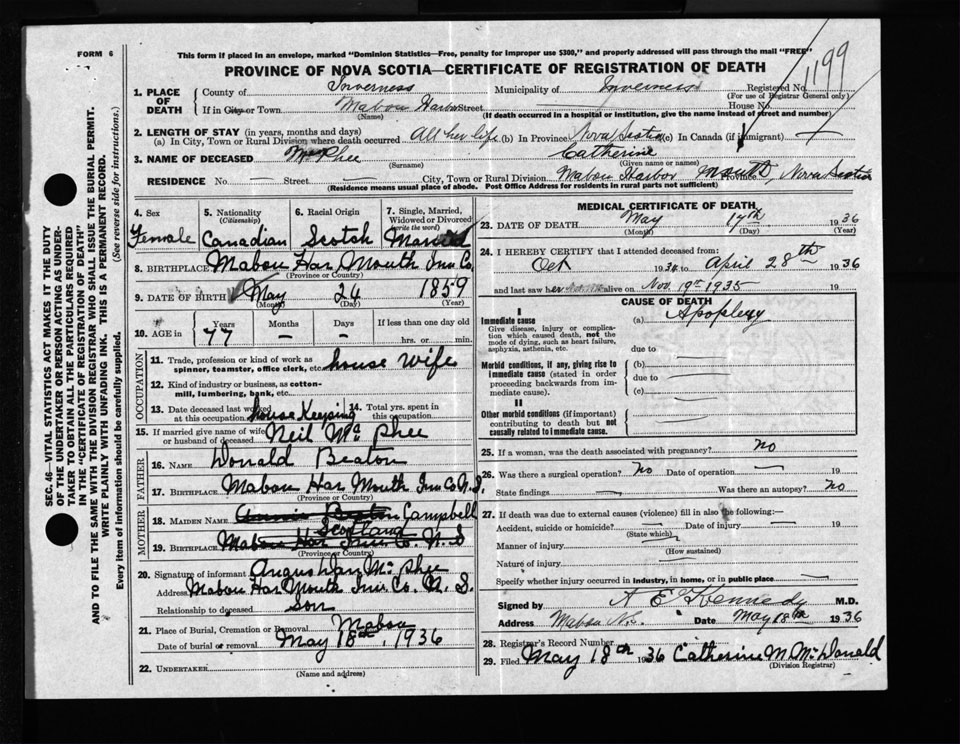 FORM 6
This form if placed in an envelope, marked "Dominion Statistics—Free, penalty for improper use $300," and properly addressed will pass through the mail "FREE"
PROVINCE OF NOVA SCOTIA—CERTIFICATE OF REGISTRATION OF DEATH
1199
1. PLACE OF DEATH County of Inverness Municipality of Inverness Registered No.
(For use of Registrar General only)
If in City or Town Mabou Harbor Street — House No.
(Name) (If death occurred in a hospital or institution, give the name instead of street and number)
2. LENGTH OF STAY (in years, months and days)
(a) In City, Town or Rural Division where death occurred All her life (b) In Province Nova Scotia (c) In Canada (if immigrant) —
3. NAME OF DECEASED McPhee Catherine
(Surname) (Given name or names)
RESIDENCE No. — Street — City, Town or Rural Division Mabou Harbor Mouth, Province Nova Scotia
(Residence means usual place of abode. Post Office Address for residents in rural parts not sufficient)
4. Sex 5. Nationality (Citizenship) 6. Racial Origin 7. Single, Married, Widowed or Divorced (write the word)
Female Canadian Scotch Married
8. BIRTHPLACE Mabou Har Mouth Inv Co.
(Province or Country)
9. DATE OF BIRTH May 24 1859
(Month) (Day) (Year)
10. AGE in Years Months Days If less than one day old
77 — — hrs. or min.
OCCUPATION
11. Trade, profession or kind of work as spinner, teamster, office clerk, etc. house wife
12. Kind of industry or business, as cotton-mill, lumbering, bank, etc.
13. Date deceased last worked at this occupation house Keeping 14. Total yrs. spent in this occupation
15. If married give name of wife or husband of deceased Neil McPhee
FATHER
16. NAME Donald Beaton
17. BIRTHPLACE Mabou Har Mouth Inv Co N.S.
(Province or Country)
MOTHER
18. MAIDEN NAME Annie Beaton Campbell
Scotland
19. BIRTHPLACE Mabou Har Inv. Co. N.S
(Province or Country)
20. Signature of informant Angus Dan McPhee
Address Mabou Har Mouth Inv. Co. N.S.
Relationship to deceased son
21. Place of Burial, Cremation or Removal Mabou
Date of burial or removal May 18th, 1936
22. UNDERTAKER
(Name and address)
MEDICAL CERTIFICATE OF DEATH
23. DATE OF DEATH May 17th 1936
(Month) (Day) (Year)
24. I HEREBY CERTIFY that I attended deceased from:
Oct 1934 to April 28th 1936
and last saw her alive on Nov. 19th 1935 19
CAUSE OF DEATH
I
Immediate cause (a) Apoplexy
Give disease, injury or complication which caused death, not the mode of dying, such as heart failure, asphyxia, asthenia, etc.
due to
Morbid conditions, if any, giving rise to immediate cause (stated in order proceeding backwards from immediate cause).
(b)
due to
(c)
II
Other morbid conditions (if important) contributing to death but not causally related to immediate cause.
25. If a woman, was the death associated with pregnancy? no
26. Was there a surgical operation? No Date of operation — 19
State findings — Was there an autopsy? no
27. If death was due to external causes (violence) fill in also the following:—
Accident, suicide or homicide? — Date of injury — 19
(State which)
Manner of injury
(How sustained)
Nature of injury
Specify whether injury occurred in industry, in home, or in public place —
Signed by A E Kennedy M.D.
Address Mabou N.S. Date May 18th 1936
28. Registrar's Record Number
29. Filed May 18th 1936 Catherine M. McDonald
(Division Registrar)
SEC. 46—VITAL STATISTICS ACT MAKES IT THE DUTY
OF THE UNDERTAKER OR PERSON ACTING AS UNDER-
TAKER TO OBTAIN ALL THE PARTICULARS REQUIRED
IN THE "CERTIFICATE OF REGISTRATION OF DEATH"
AND TO FILE THE SAME WITH THE DIVISION REGISTRAR WHO SHALL ISSUE THE BURIAL PERMIT.
WRITE PLAINLY WITH UNFADING INK. THIS IS A PERMANENT RECORD.
Every item of information should be carefully supplied. (See reverse side for instructions.)